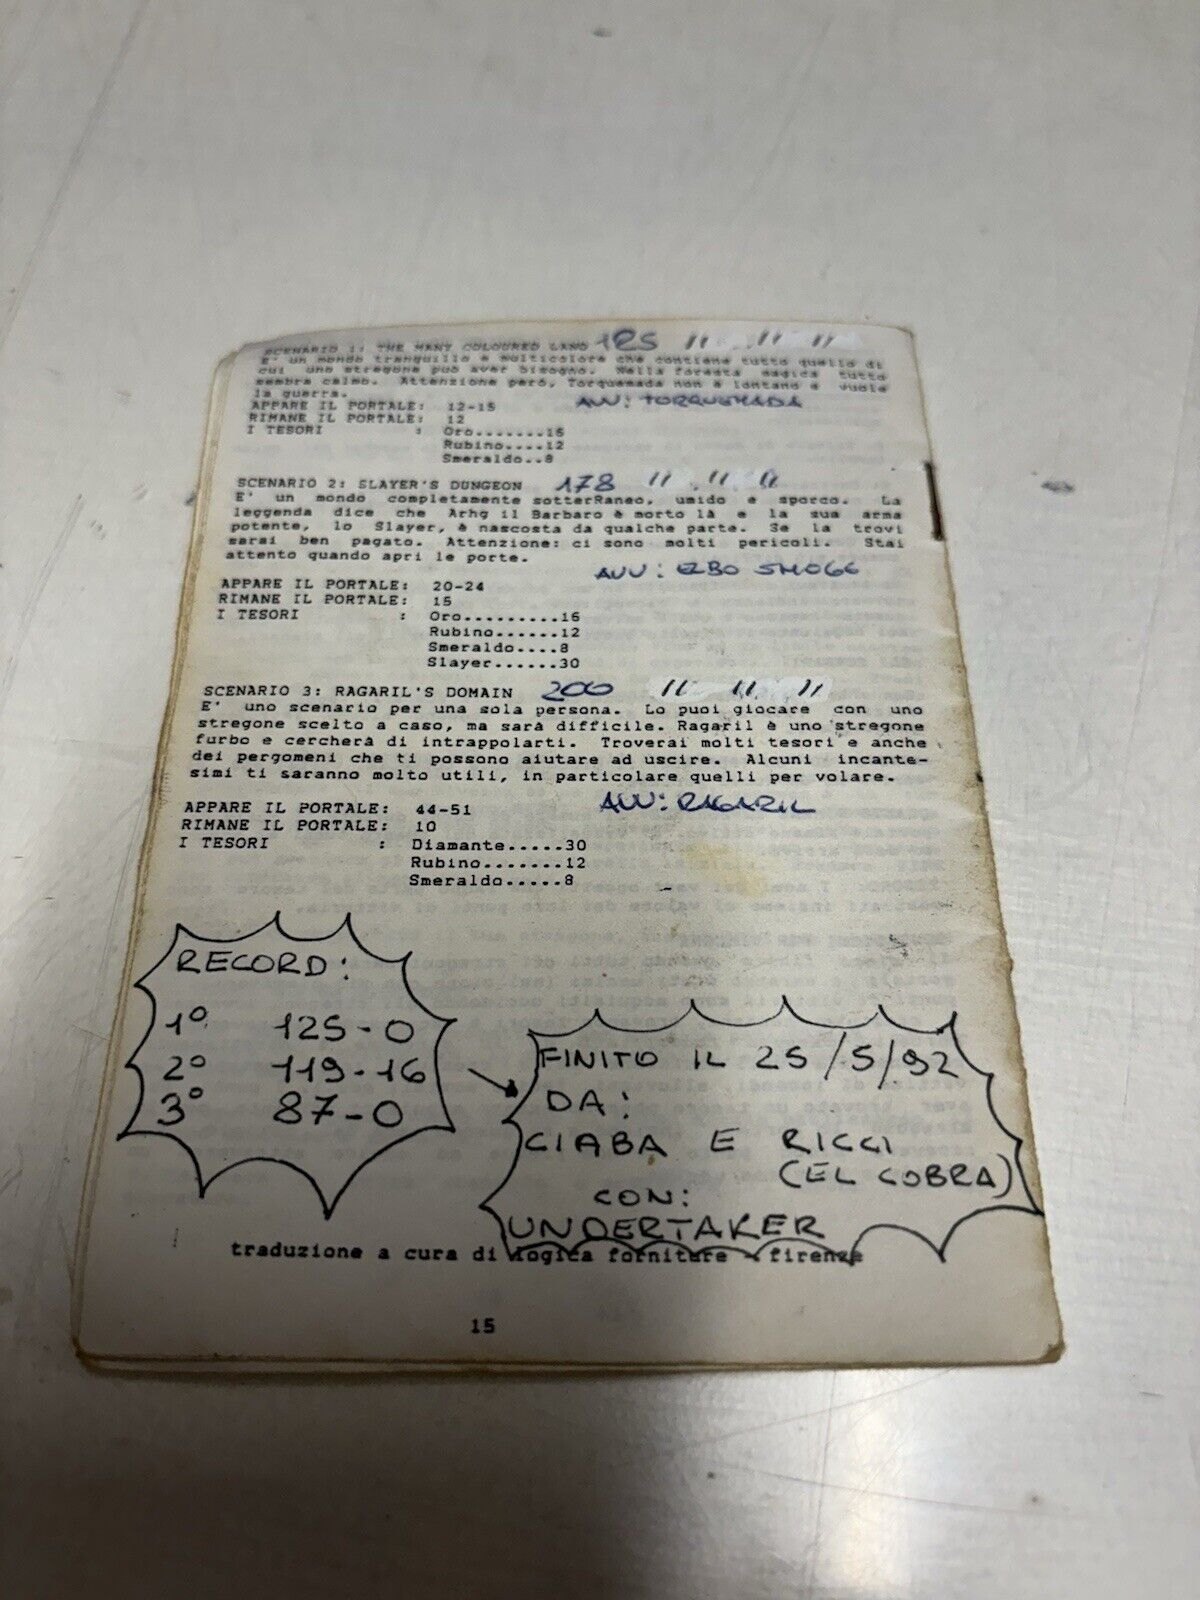 SCENARIO 1: THE MANY COLOURED LAND 125 " " "
E' un mondo tranquillo e multicolore che contiene tutto quello di
cui uno stregone può aver bisogno. Nella foresta magica tutto
sembra calmo. Attenzione però, Torquemada non è lontano e vuole
la guerra.
AVV: TORQUEMADA
APPARE IL PORTALE: 12-15
RIMANE IL PORTALE: 12
I TESORI : Oro........16
Rubino....12
Smeraldo..8
SCENARIO 2: SLAYER'S DUNGEON 178 " " "
E' un mondo completamente sotterRaneo, umido e sporco. La
leggenda dice che Arhg il Barbaro è morto là e la sua arma
potente, lo Slayer, è nascosta da qualche parte. Se la trovi
sarai ben pagato. Attenzione: ci sono molti pericoli. Stai
attento quando apri le porte.
AVV: EZBO SMOGG
APPARE IL PORTALE: 20-24
RIMANE IL PORTALE: 15
I TESORI : Oro.........16
Rubino......12
Smeraldo....8
Slayer......30
SCENARIO 3: RAGARIL'S DOMAIN 200 " " "
E' uno scenario per una sola persona. Lo puoi giocare con uno
stregone scelto a caso, ma sarà difficile. Ragaril è uno stregone
furbo e cercherà di intrappolarti. Troverai molti tesori e anche
dei pergomeni che ti possono aiutare ad uscire. Alcuni incante-
simi ti saranno molto utili, in particolare quelli per volare.
AVV: RAGARIL
APPARE IL PORTALE: 44-51
RIMANE IL PORTALE: 10
I TESORI : Diamante.....30
Rubino.......12
Smeraldo.....8
RECORD:
1° 125-0
2° 119-16
3° 87-0
FINITO IL 25/5/92
DA:
CIABA E RICCI
(EL COBRA)
CON:
UNDERTAKER
traduzione a cura di logica forniture - firenze
15